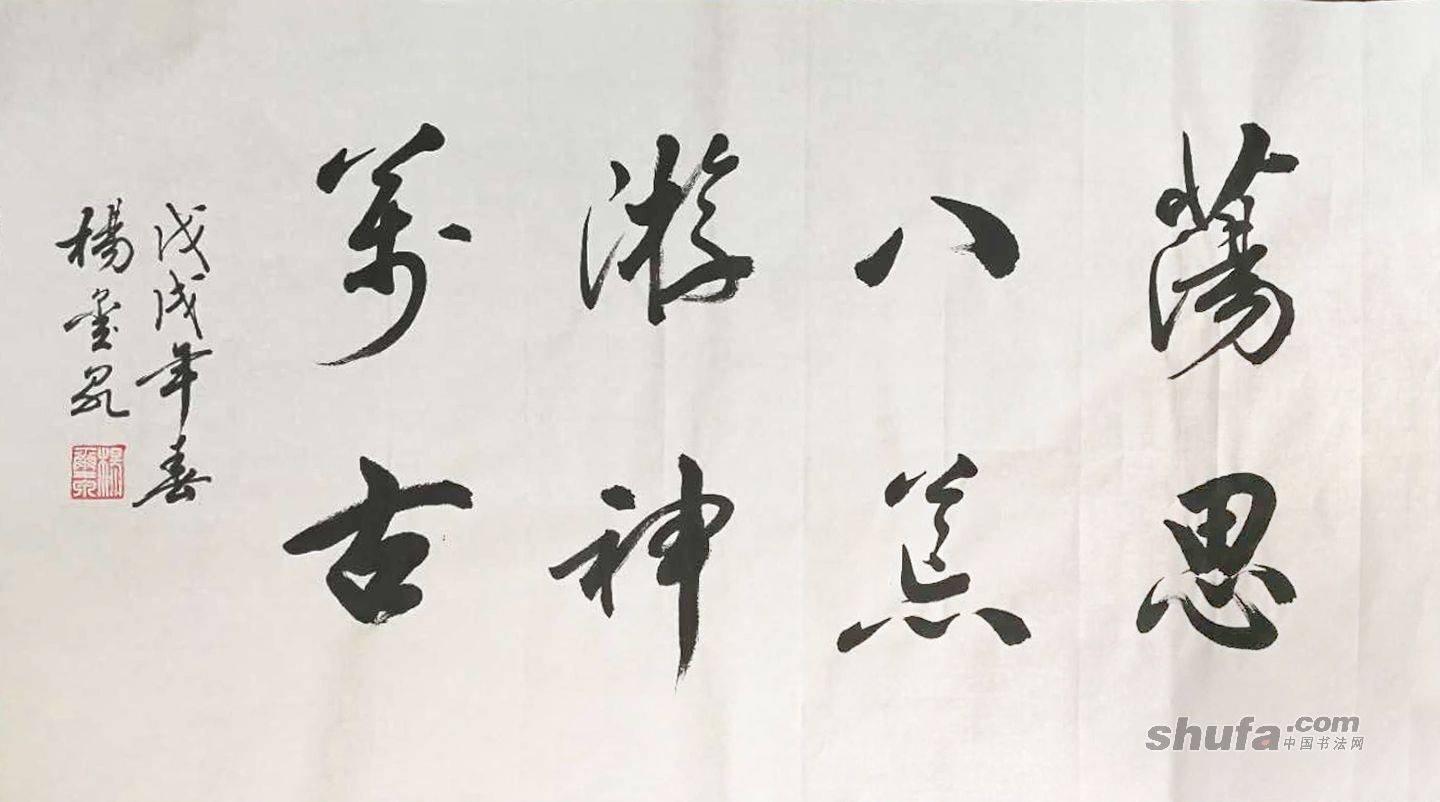 蕩思
八荒
游神
萬古
戊戌年春
楊
shufa.com
中国书法网